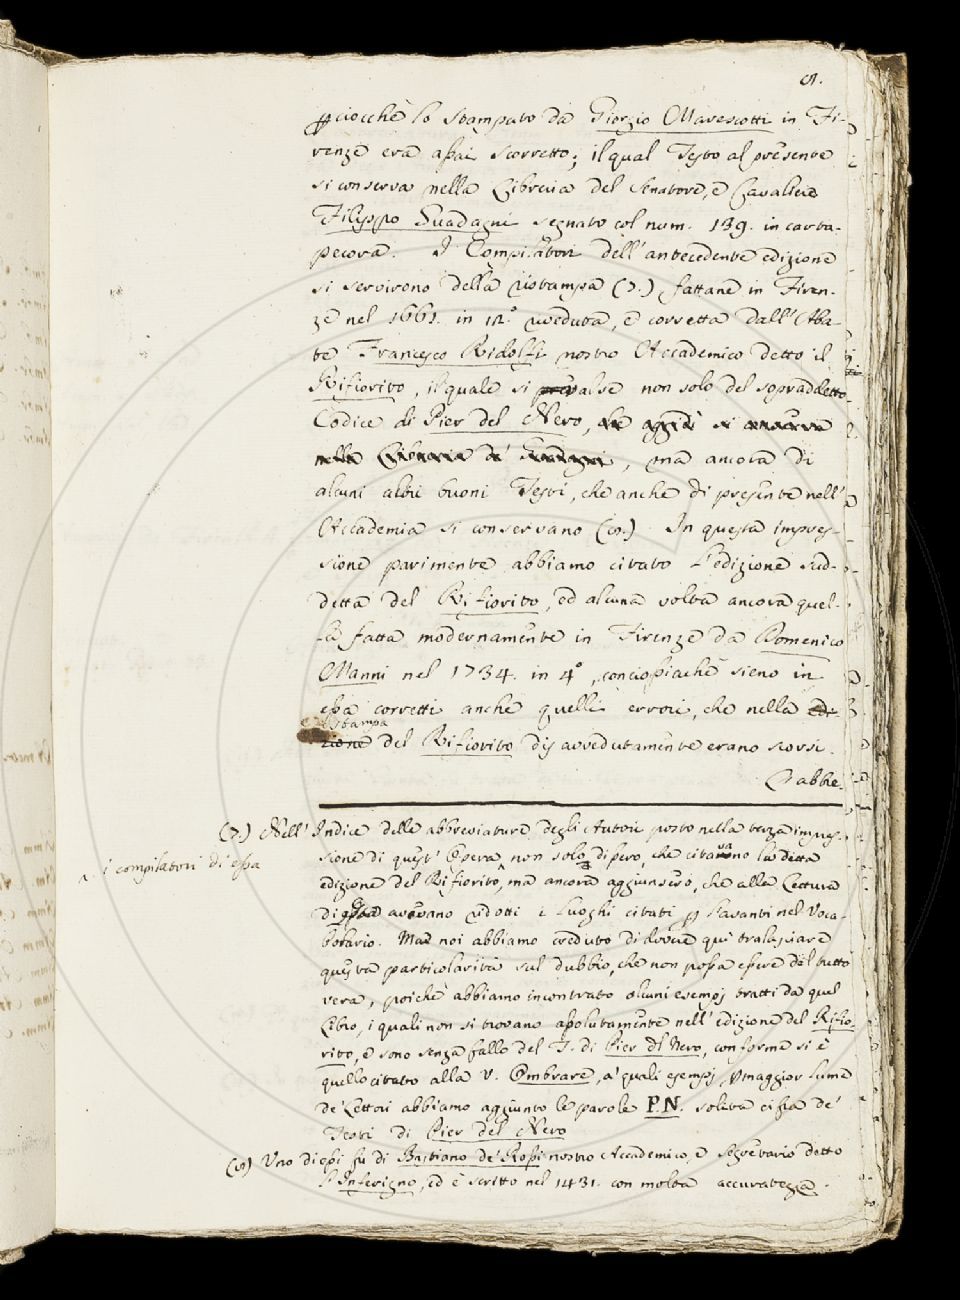 ciocchè lo Stampato da Giorgio Marescotti in Fi-
renze era assai scorretto; il qual Testo al presente
si conserva nella Libreria del Senatore, e Cavaliere
Filippo Guadagni segnato col num. 139. in carta-
pecora. I Compilatori dell'antecedente edizione
si servirono della ristampa (7.) fattane in Firen-
ze nel 1661. in 12.° riveduta, e corretta dall'Aba-
te Francesco Ridolfi nostro Accademico detto il
Rifiorito, il quale si prevalse non solo del sopraddetto
Codice di Pier del Nero, che oggidì si conserva
nella Libreria de' Guadagni, ma ancora di
alcuni altri buoni Testi, che anche di presente nell'
Accademia si conservano. In questa impres-
sione parimente abbiamo citato l'edizione sud-
detta del Rifiorito, ed alcuna volta ancora quel-
la fatta modernamente in Firenze da Domenico
Manni nel 1734. in 4.°, conciossiachè sieno in
essa corretti anche quelli errori, che nella edi-
stampa
zione del Rifiorito disavvedutamente erano scorsi.
(7.) Nell'Indice delle abbreviature degli Autori posto nella terza impres-
sione di quest'Opera, non solo dissero, che citavano la detta
^ i compilatori di essa
edizione del Rifiorito,^ ma ancora aggiunsero, che alla Lettura
di avevano ridotti i Luoghi citati per l'avanti nel Voca-
bolario. Ma noi abbiamo creduto di dovere qui tralasciare
questa particolarità sul dubbio, che non possa essere del tutto
vera, poichè abbiamo incontrato alcuni esempj tratti da quel
Libro, i quali non si trovano assolutamente nell'edizione del Rifio-
rito, e sono senza fallo del T. di Pier del Nero, conforme si è
quello citato alla V. Ombrare, a' quali esempj, maggior lume
de' Lettori abbiamo aggiunto le parole P.N. solita cifra de'
Testi di Pier del Nero
Uno di essi fu di Bastiano de' Rossi nostro Accademico, e Segretario detto
l'Inferigno, ed è scritto nel 1431. con molta accuratezza.